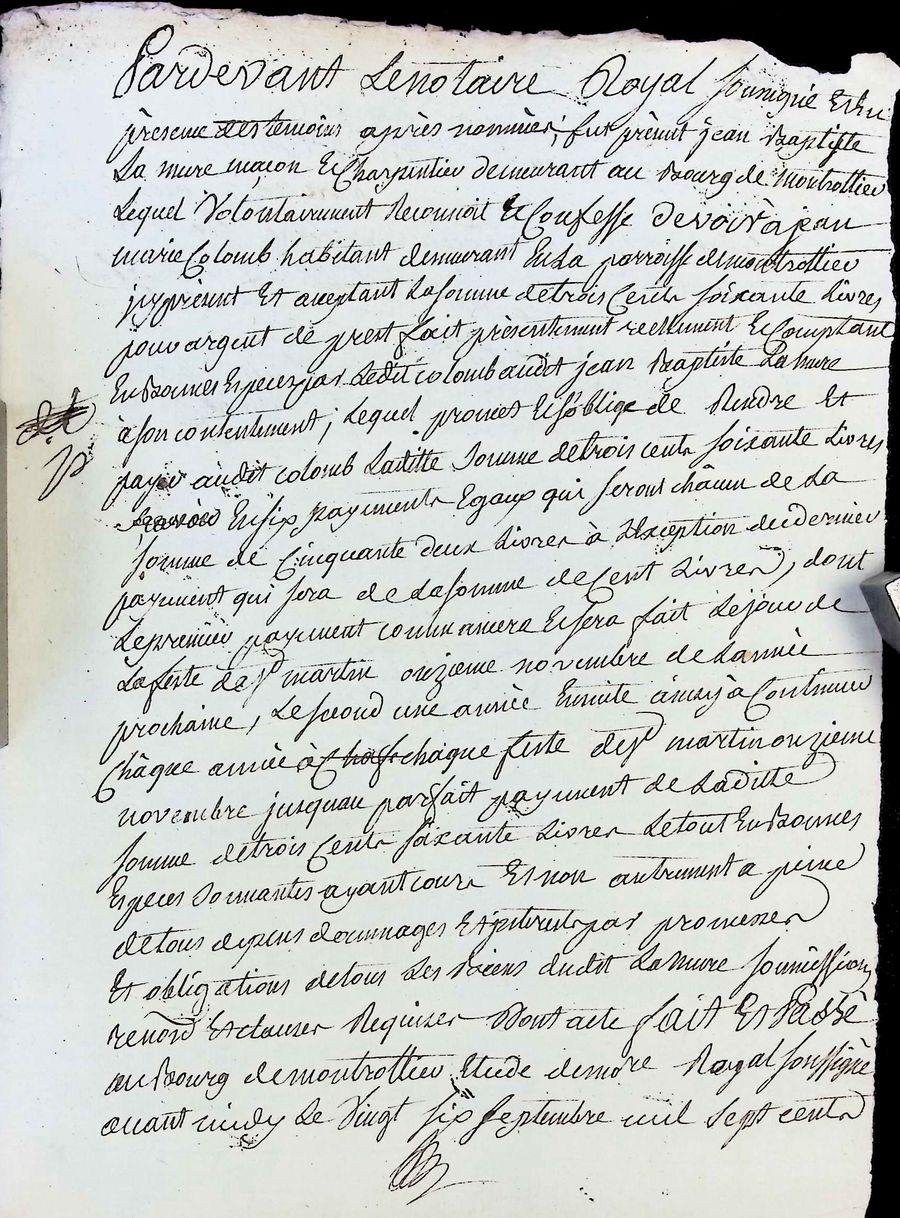 Pardevant Lenotaire Royal soussigné Et En
présence des temoins après nommés, fut présent jean Baptiste
La mure maçon Et Charpentier demeurant au Bourg de montrottier
Lequel Volontairement Reconnoit Et Confesse devoir à jean
marie Colomb habitant demeurant En La parroisse de montrottier
jcy présent Et aceptant La somme de trois Cents soixante Livres
pour argent de prest fait présentement reellement Et Comptant
En Bonnes Especes par Ledit colomb audit jean Baptiste La mure
à son contentement, Lequel promet Et s'oblige de Rendre Et
payer audit colomb Laditte somme de trois cents soixante Livres
En six payements Egaux qui seront châcun de La
somme de Cinquante deux Livres à L'Exception du dernier
payement qui sera de La somme de Cent Livres, dont
Le premier payement commancera Et sera fait Le jour de
La feste de St martin onzieme novembre de L'année
prochaine, Le second une année Ensuite ainsy à Continuer
Châque année à châque feste de St martin onzieme
novembre jusquau parfait payement de Laditte
somme de trois Cents soixante Livres Le tout En Bonnes
Especes sonnantes ayant cours Et non autrement a peine
de tous depens dommages Et jnterets par promesses
Et obligations de tous Les Biens dudit La mure soumissions
renond Et clauses Requises Dont acte fait Et Passé
au Bourg de montrottier Etude de Royal soussigné
avant midy Le Vingt six septembre mil sept cents